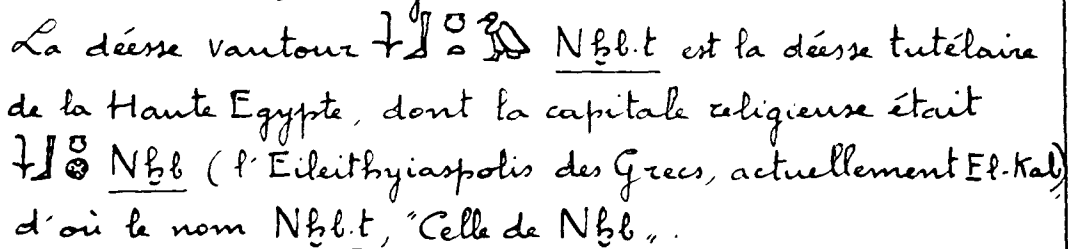 La déesse vautour Nḫb.t est la déesse tutélaire
de la Haute Egypte, dont la capitale religieuse était
Nḫb (l'Eileithyiaspolis des Grecs, actuellement El-Kab)
d'où le nom Nḫb.t, "Celle de Nḫb„.